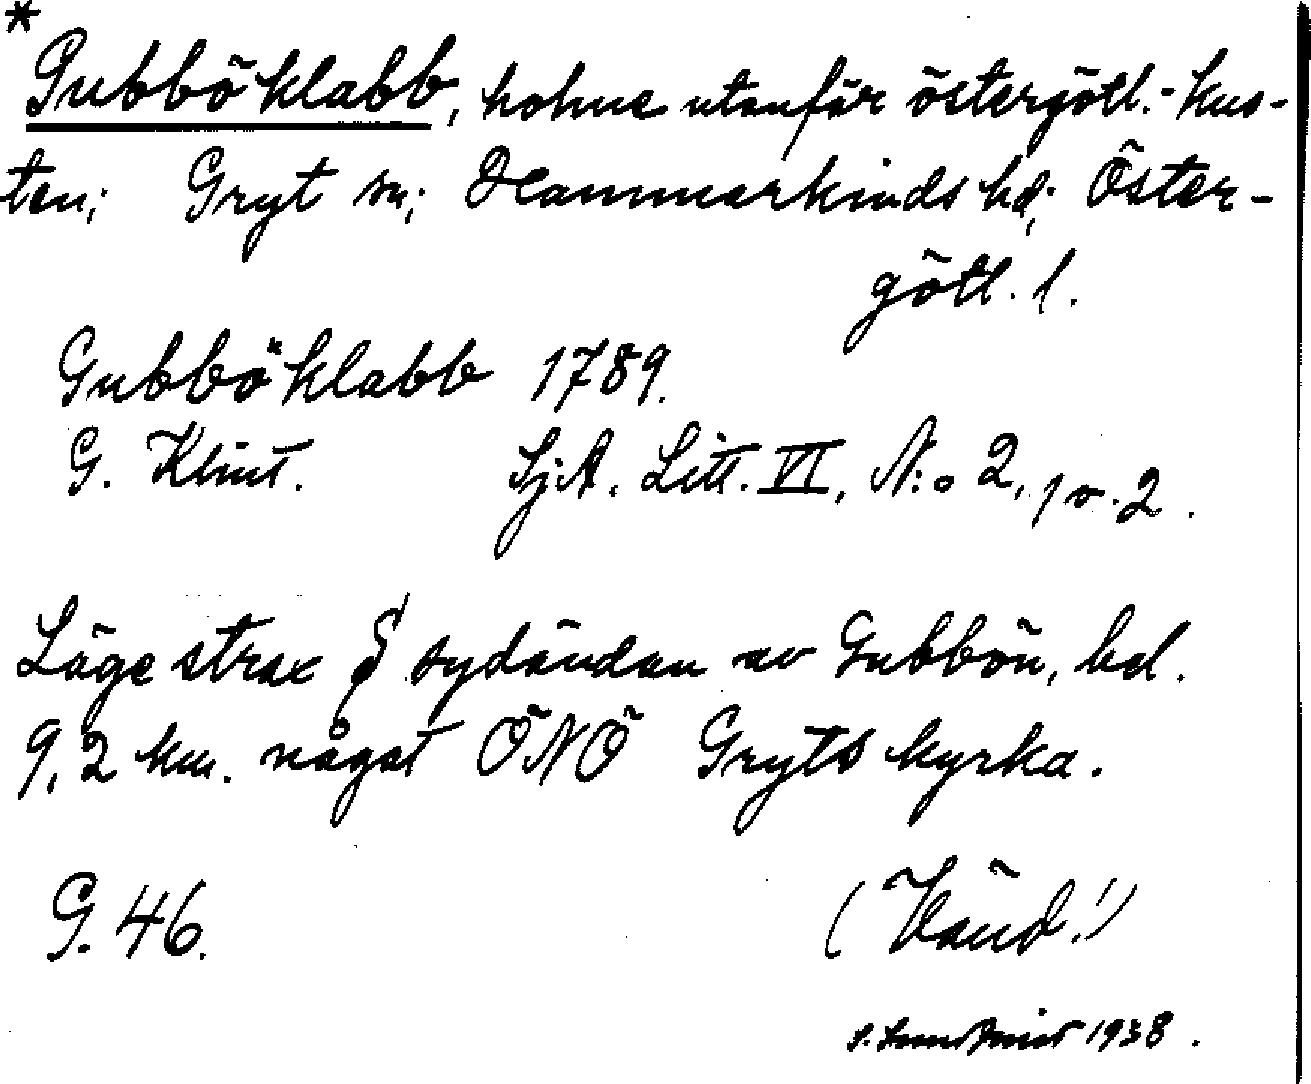 *
Gubböklabb, holme utanför östergötl.-kus-
ten; Gryt sn; Hammarkinds hd; Öster-
götl. l.
Gubböklabb 1789.
G. Klint. SjA. Litt. VI, N:o 2, 1 v. 2.
Läge strax S sydändan av Gubbön, bel.
9,2 km. något ÖNÖ Gryts kyrka.
G. 46. (Vänd!)
1938.